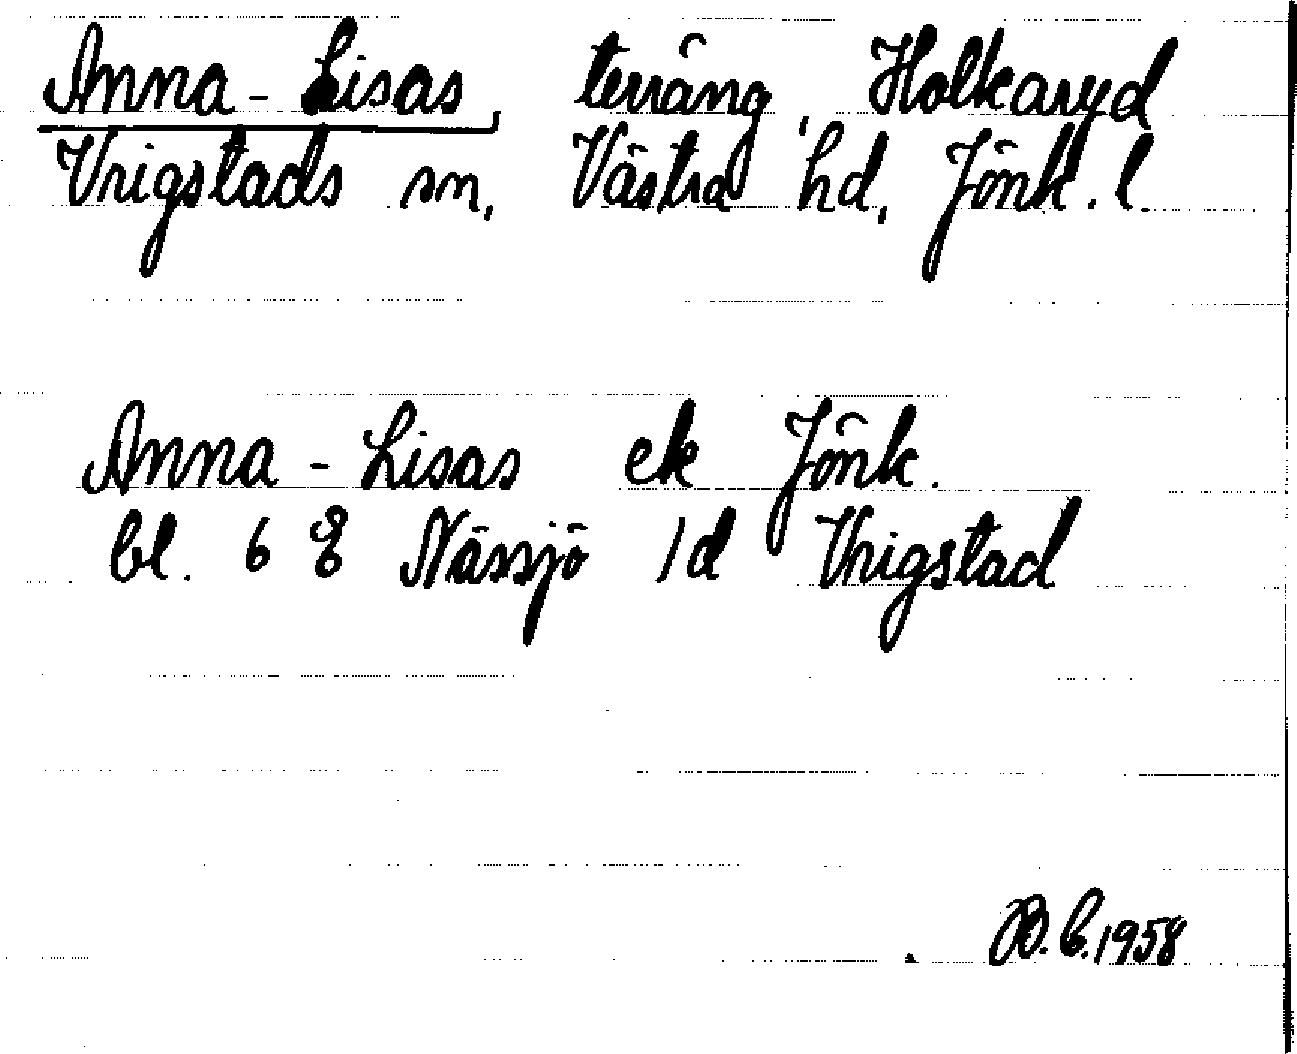 Anna-Lisas, terräng, Holkaryd
Vrigstads sn, Västra hd, Jönk. l.
Anna-Lisas ek Jönk.
bl. 6 E Nässjö 1d Vrigstad
B.E.1958